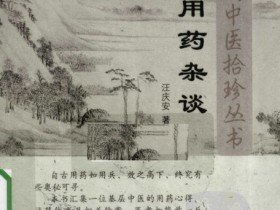 中医拾珍丛书
用药杂谈
汪庆安 著
自古用药如用兵，效之高下，终究有
些奥秘可寻。
本书汇集一位基层中医的用药心得，